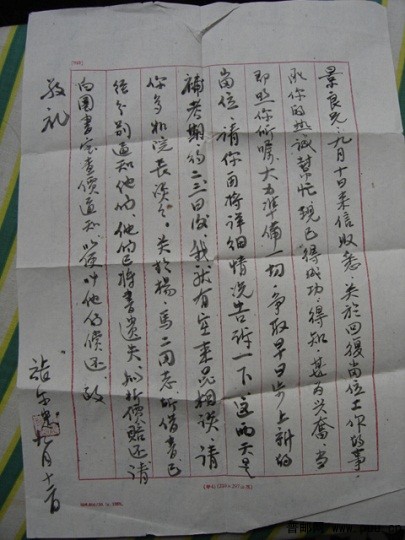 景良兄：九月十日来信收悉，关于回复岗位工作的事，
承你的热诚帮忙，现已得成功，得知，甚为兴奋，当
即照你所嘱，大力准备一切，争取早日步上新的
岗位，请你再将详细情况告诉一下，这两天是
补考期，约二三日后我就有空来昆相谈，请
你多和院长谈谈。关于杨、马二同志所借书，已
经分别通知他们，他们已将书遗失，拟折价赔还，请
向图书室查价通知，以便叫他们偿还。致
敬礼
九月十一日